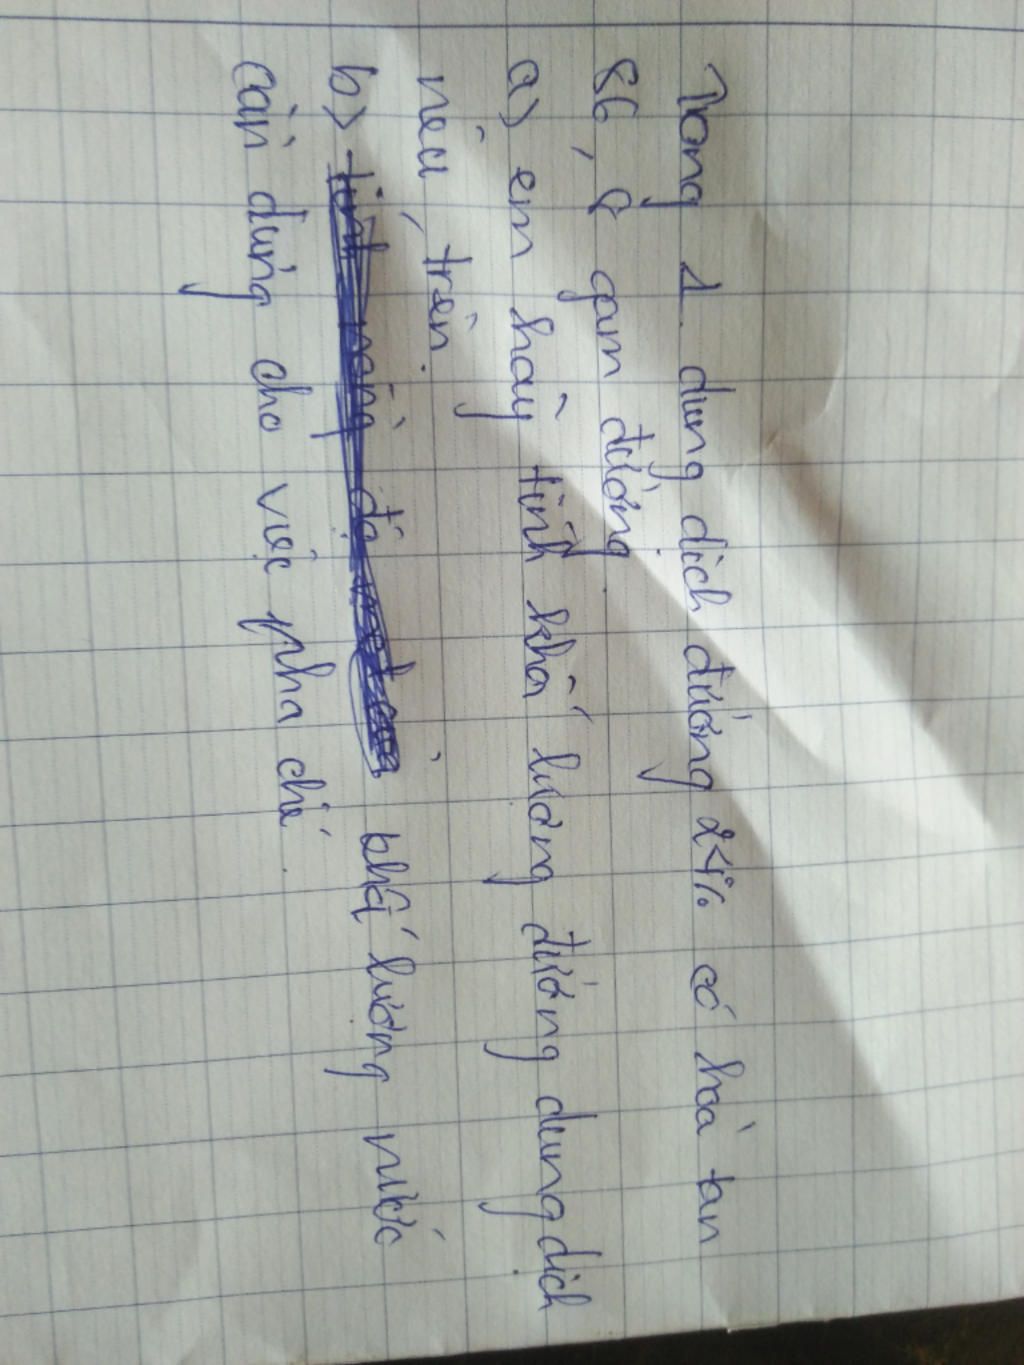 Trong 1 dung dịch đường 24% có hoà tan
86, 9 gam đường
a) em hãy tính khối lượng đường dung dịch
nêu trên.
b) khối lượng nước
cần dùng cho việc pha chế